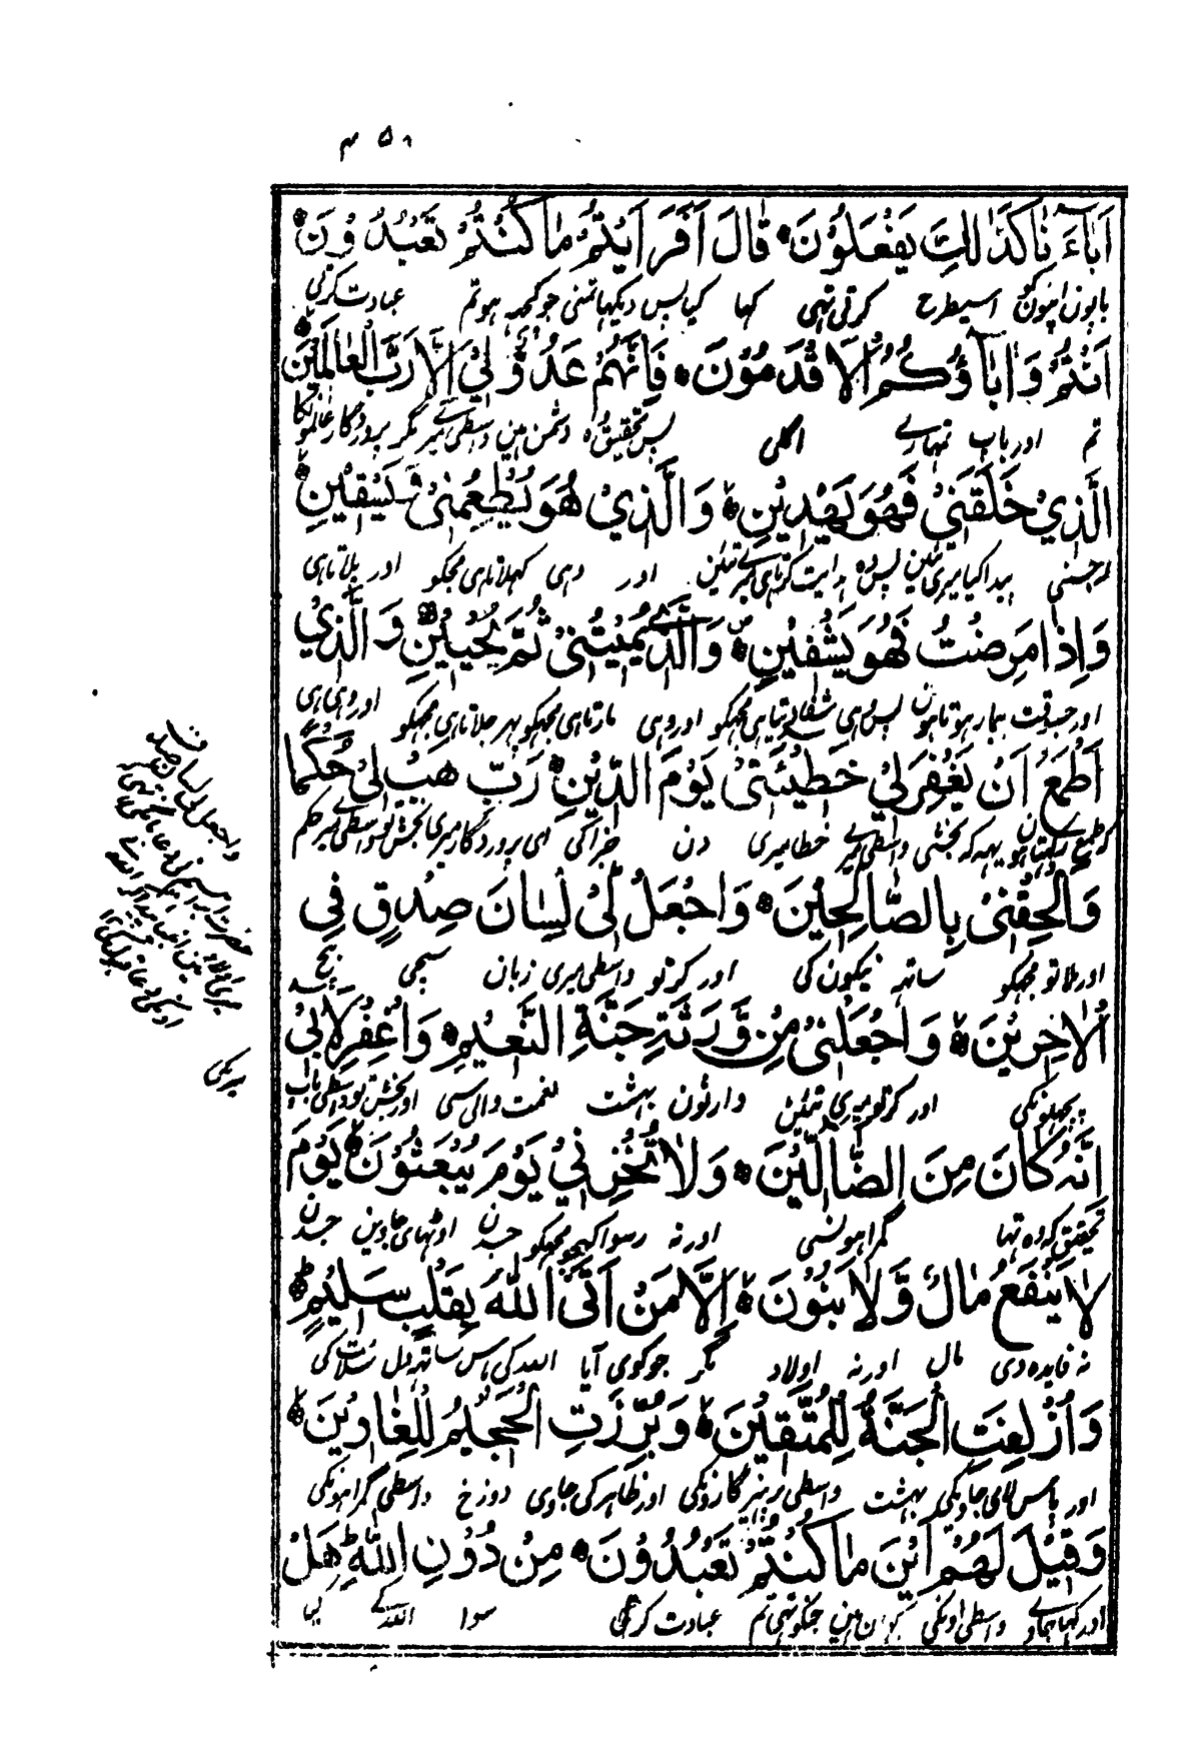 ۴۵۸
اٰبَآءَنَا كَذٰلِكَ يَفْعَلُوْنَ قَالَ اَفَرَاَيْتُمْ مَا كُنْتُمْ تَعْبُدُوْنَ
باپون اپنون کو اسیطرح کرتی تہی کہا کیا پس دیکہا تمنی جو کچہہ ہو تم عبادت کرتی
اَنْتُمْ وَاٰبَآؤُكُمُ الْاَقْدَمُوْنَ فَاِنَّهُمْ عَدُوٌّ لِيْ اِلَّا رَبَّ الْعٰالَمِيْنَ
تم اور باپ تمہارے اگلی پس تحقیق وہ دشمن ہین واسطی میرے مگر پروردگار عالمونکا
الَّذِيْ خَلَقَنِيْ فَهُوَ يَهْدِيْنِ وَالَّذِيْ هُوَ يُطْعِمُنِيْ وَيَسْقِيْنِ
جسنی پیدا کیا میری تئین پس وہ ہدایت کرتا ہی میرے تئین اور وہی کہلاتا ہی مجکو اور پلاتا ہی
وَاِذَا مَرِضْتُ فَهُوَ يَشْفِيْنِ وَالَّذِيْ يُمِيْتُنِيْ ثُمَّ يُحْيِيْنِ وَالَّذِيْ
اور جسوقت بیمار ہوتا ہون پس وہی شفا دیتا ہی مجہکو اور وہی مارتا ہی مجہکو پہر جلاتا ہی مجہکو اور وہی ہی
اَطْمَعُ اَنْ يَغْفِرَ لِيْ خَطِيْئَتِيْ يَوْمَ الدِّيْنِ رَبِّ هَبْ لِيْ حُكْمًا
کہ طمع رکہتا ہون یہہ کہ بخشی واسطی میرے خطا میری دن جزا کی ای پروردگار میری بخش تو واسطی میرے حکم
وَاَلْحِقْنِيْ بِالصَّالِحِيْنَ وَاجْعَلْ لِيْ لِسَانَ صِدْقٍ فِي
اور ملا تو مجہکو ساتہہ نیکون کی اور کر تو واسطی میری زبان سچی بیچ
الْاٰخِرِيْنَ وَاجْعَلْنِيْ مِنْ وَّرَثَةِ جَنَّةِ النَّعِيْمِ وَاغْفِرْ لِاَبِيْ
پچہلونکی اور کر تو میری تئین وارثون بہشت نعمت والی سی اور بخش تو واسطی باپ
اِنَّهُ كَانَ مِنَ الضَّالِّيْنَ وَلَا تُخْزِنِيْ يَوْمَ يُبْعَثُوْنَ يَوْمَ
تحقیق کہ وہ تہا گمراہونسی اور نہ رسوا کیجیو مجہکو جسدن اوٹہای جاوین جسدن
لَا يَنْفَعُ مَالٌ وَّلَا بَنُوْنَ اِلَّا مَنْ اَتَى اللّٰهَ بِقَلْبٍ سَلِيْمٍ
نہ فایدہ دی مال اور نہ اولاد مگر جو کوی آیا اللہ کی پاس ساتہہ دل سلامت کی
وَاُزْلِفَتِ الْجَنَّةُ لِلْمُتَّقِيْنَ وَبُرِّزَتِ الْجَحِيْمُ لِلْغٰاوِيْنَ
اور پاس لای جاویگی بہشت واسطی پرہیزگارونکی اور ظاہر کی جاوی دوزخ واسطی گمراہونکی
وَقِيْلَ لَهُمْ اَيْنَ مَا كُنْتُمْ تَعْبُدُوْنَ مِنْ دُوْنِ اللّٰهِ هَلْ
اور کہا جاوے واسطی اونکی کہان ہین جنکو تہی تم عبادت کرتی سوا اللہ کے کیا
ف
واجعل لی لسان صدق
میریکی